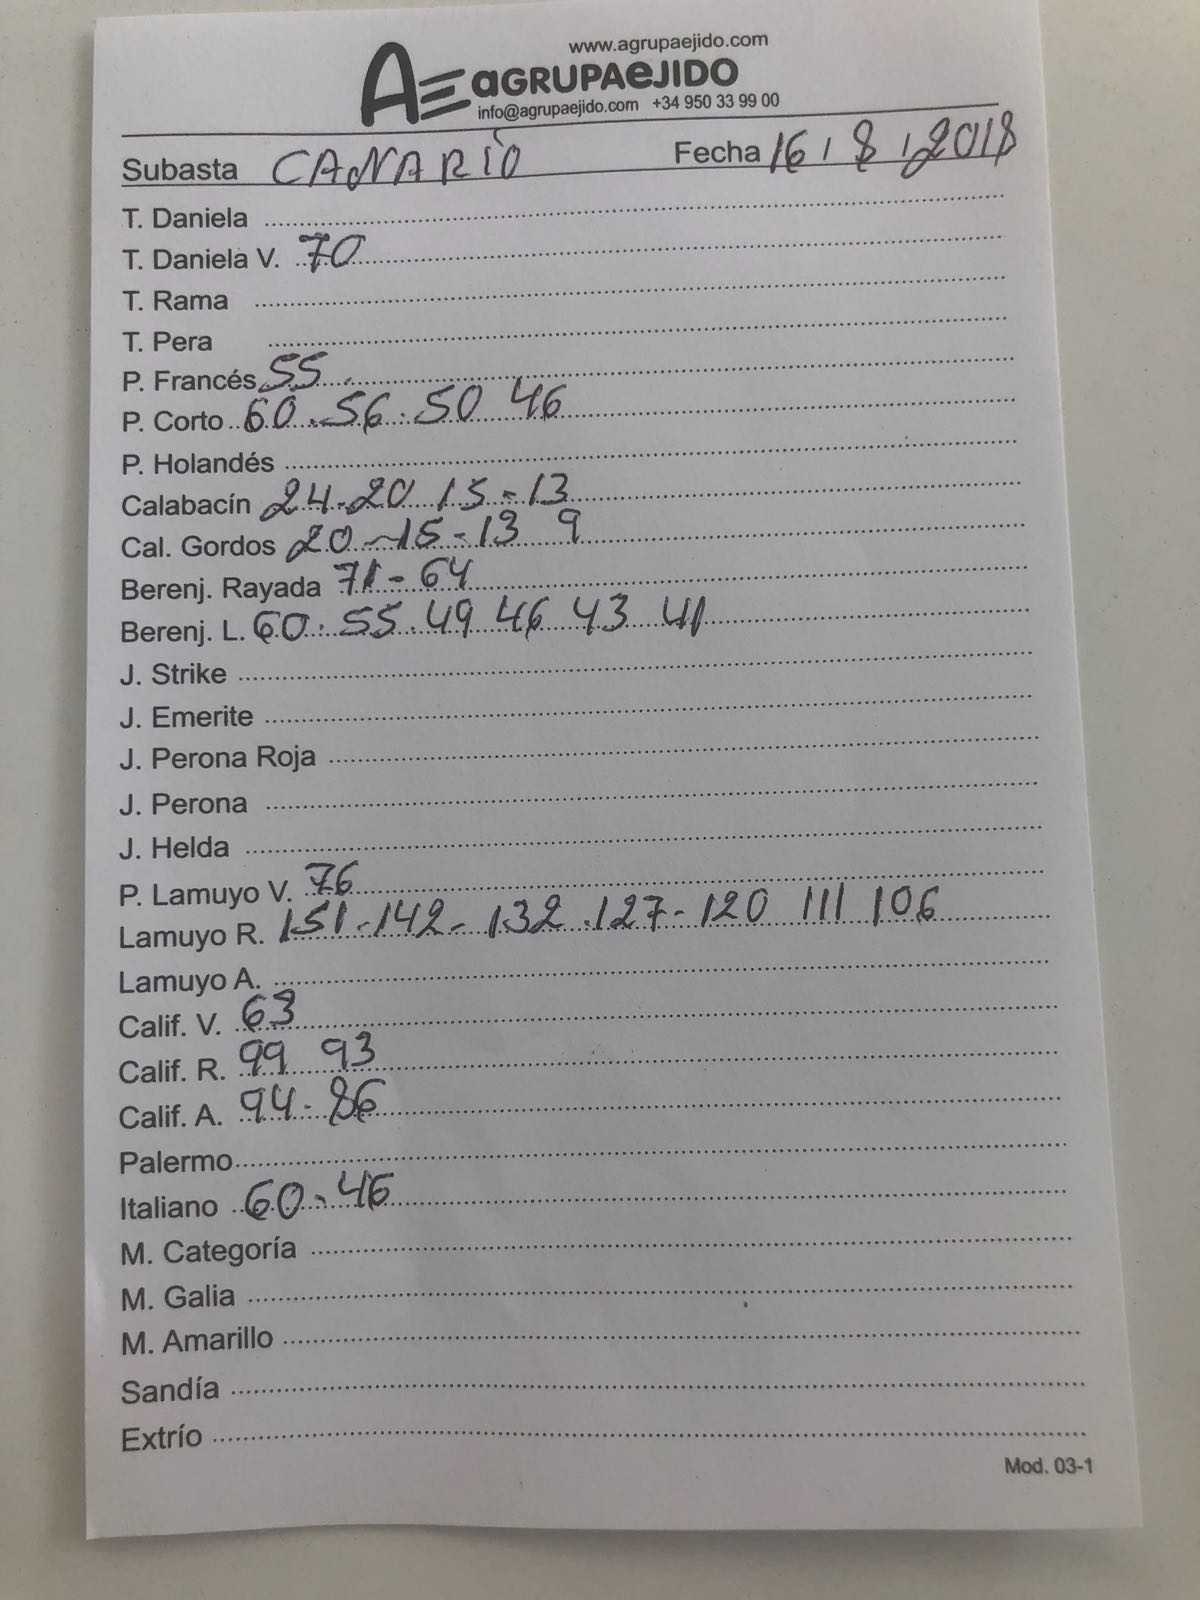 www.agrupaejido.com
AE aGRUPAeJIDO
info@agrupaejido.com +34 950 33 99 00
Subasta CANARIO Fecha 16 / 8 / 2018
T. Daniela
T. Daniela V. 70
T. Rama
T. Pera
P. Francés 55
P. Corto 60 - 56 - 50 46
P. Holandés
Calabacín 24 - 20 15 - 13
Cal. Gordos 20 - 15 - 13 9
Berenj. Rayada 71 - 64
Berenj. L. 60 - 55 - 49 46 43 41
J. Strike
J. Emerite
J. Perona Roja
J. Perona
J. Helda
P. Lamuyo V. 76
Lamuyo R. 151 - 142 - 132 - 127 - 120 111 106
Lamuyo A.
Calif. V. 63
Calif. R. 99 93
Calif. A. 94 - 86
Palermo
Italiano 60 - 46
M. Categoría
M. Galia
M. Amarillo
Sandía
Extrío
Mod. 03-1